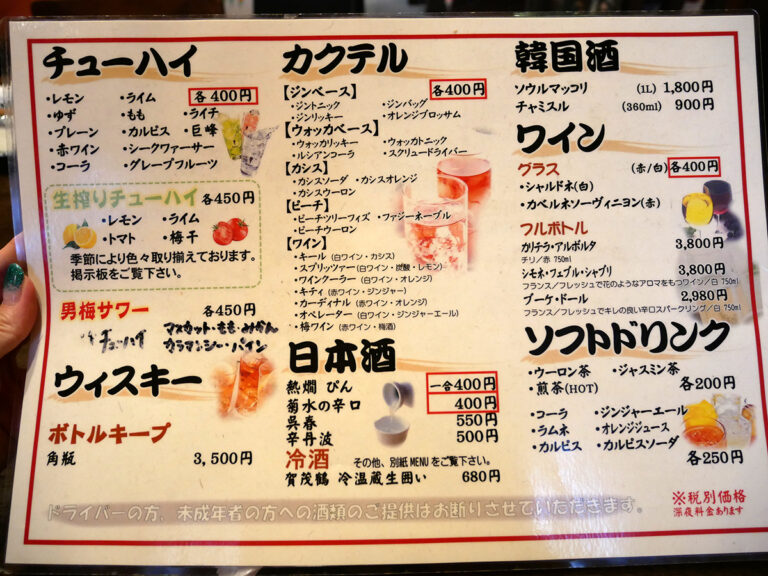 チューハイ
・レモン ・ライム 各400円
・ゆず ・もも ・ライチ
・プレーン ・カルピス ・巨峰
・赤ワイン ・シークヮーサー
・コーラ ・グレープフルーツ
生搾りチューハイ 各450円
・レモン ・ライム
・トマト ・梅干
季節により色々取り揃えております。
掲示板をご覧下さい。
男梅サワー 各450円
チューハイ マスカット・もも・みかん
カラマンシー・パイン
ウィスキー
ボトルキープ
角瓶 3,500円
カクテル
【ジンベース】 各400円
・ジントニック ・ジンバッグ
・ジンリッキー ・オレンジブロッサム
【ウォッカベース】
・ウォッカリッキー ・ウォッカトニック
・ルシアンコーラ ・スクリュードライバー
【カシス】
・カシスソーダ ・カシスオレンジ
・カシスウーロン
【ピーチ】
・ピーチツリーフィズ ・ファジーネーブル
・ピーチウーロン
【ワイン】
・キール(白ワイン・カシス)
・スプリッツァー(白ワイン・炭酸・レモン)
・ワインクーラー(白ワイン・オレンジ)
・キティ(赤ワイン・ジンジャー)
・カーディナル(赤ワイン・オレンジ)
・オペレーター(白ワイン・ジンジャーエール)
・梅ワイン(赤ワイン・梅酒)
日本酒
熱燗 びん 一合400円
菊水の辛口 400円
呉春 550円
辛丹波 500円
冷酒 その他、別紙MENUをご覧下さい。
賀茂鶴 冷温蔵生囲い 680円
韓国酒
ソウルマッコリ (1L) 1,800円
チャミスル (360ml) 900円
ワイン
グラス (赤/白)各400円
・シャルドネ(白)
・カベルネソーヴィニヨン(赤)
フルボトル
カリテラ・アルボルタ 3,800円
チリ/赤 750ml
シモネ・フェブル・シャブリ 3,800円
フランス/フレッシュで花のようなアロマをもつワイン/白 750ml
ブーケ・ドール 2,980円
フランス/フレッシュでキレの良い辛口スパークリング/白 750ml
ソフトドリンク
・ウーロン茶 ・ジャスミン茶
・煎茶(HOT) 各200円
・コーラ ・ジンジャーエール
・ラムネ ・オレンジジュース
・カルピス ・カルピスソーダ
各250円
※税別価格
深夜料金あります
ドライバーの方、未成年者の方への酒類のご提供はお断りさせていただきます。